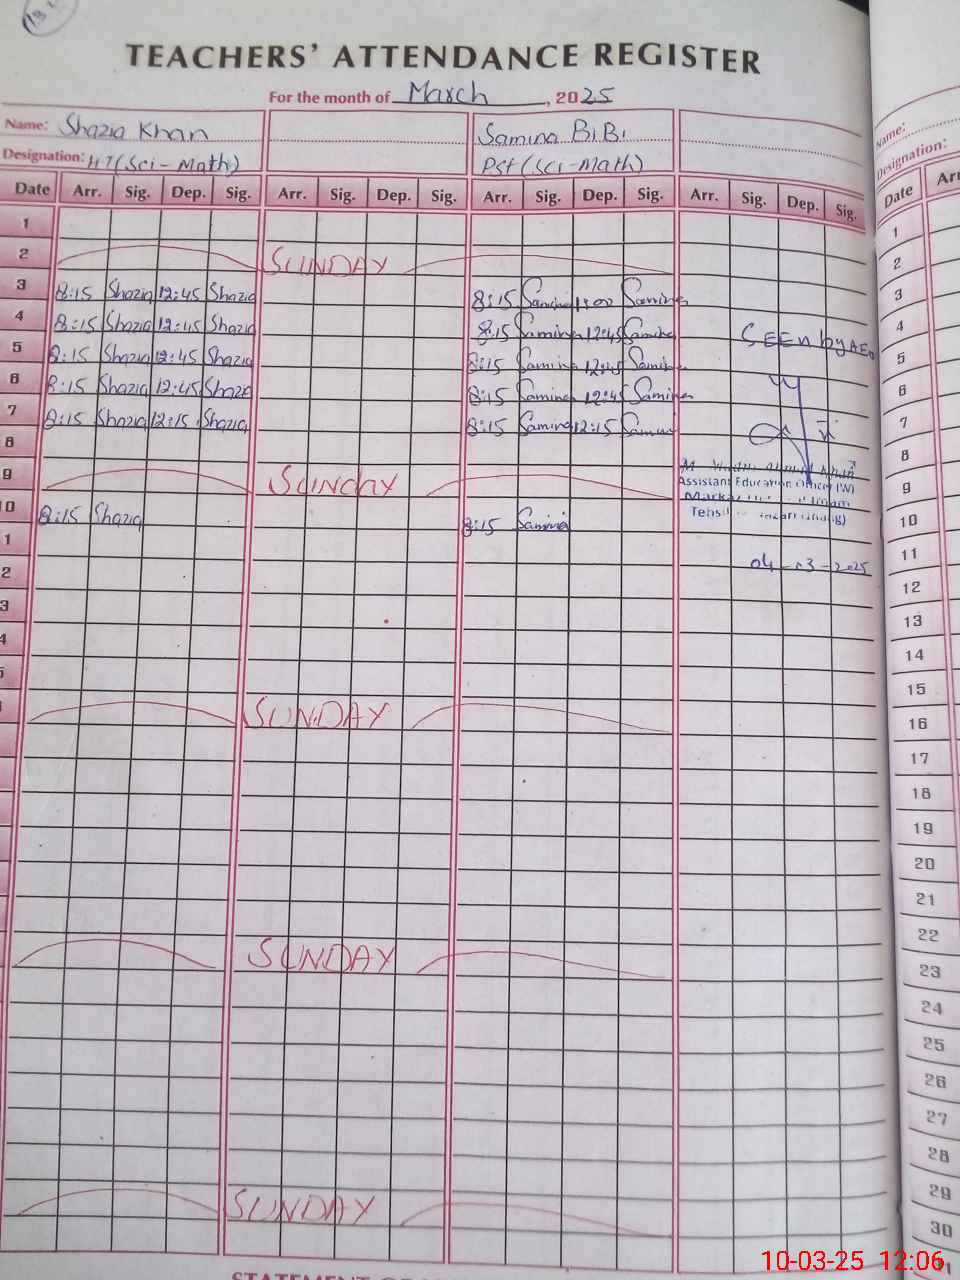 TEACHERS' ATTENDANCE REGISTER
For the month of March, 2025
Name: Shazia Khan Samina BiBi
Designation: HT(Sci-Math) PST (Sci-Math)
Date Arr. Sig. Dep. Sig. Arr. Sig. Dep. Sig. Arr. Sig. Dep. Sig. Arr. Sig. Dep. Sig.
1
2 SUNDAY
3 8:15 Shazia 12:45 Shazia 8:15 Samina 1:00 Samina
4 8:15 Shazia 12:45 Shazia 8:15 Samina 12:45 Samina SEEn by AEO
5 8:15 Shazia 12:45 Shazia 8:15 Samina 12:45 Samina
6 8:15 Shazia 12:45 Shazia 8:15 Samina 12:45 Samina
7 8:15 Shazia 12:15 Shazia 8:15 Samina 12:15 Samina
8
9 SUNDAY
Assistant Education Officer (W)
Tehsil
0 8:15 Shazia 8:15 Samina
1
04-03-2025
2
3
4
5
SUNDAY
SUNDAY
SUNDAY
Name:
Designation:
Date Arr
1
2
3
4
5
6
7
8
9
10
11
12
13
14
15
16
17
18
19
20
21
22
23
24
25
26
27
28
29
30
10-03-25 12:06